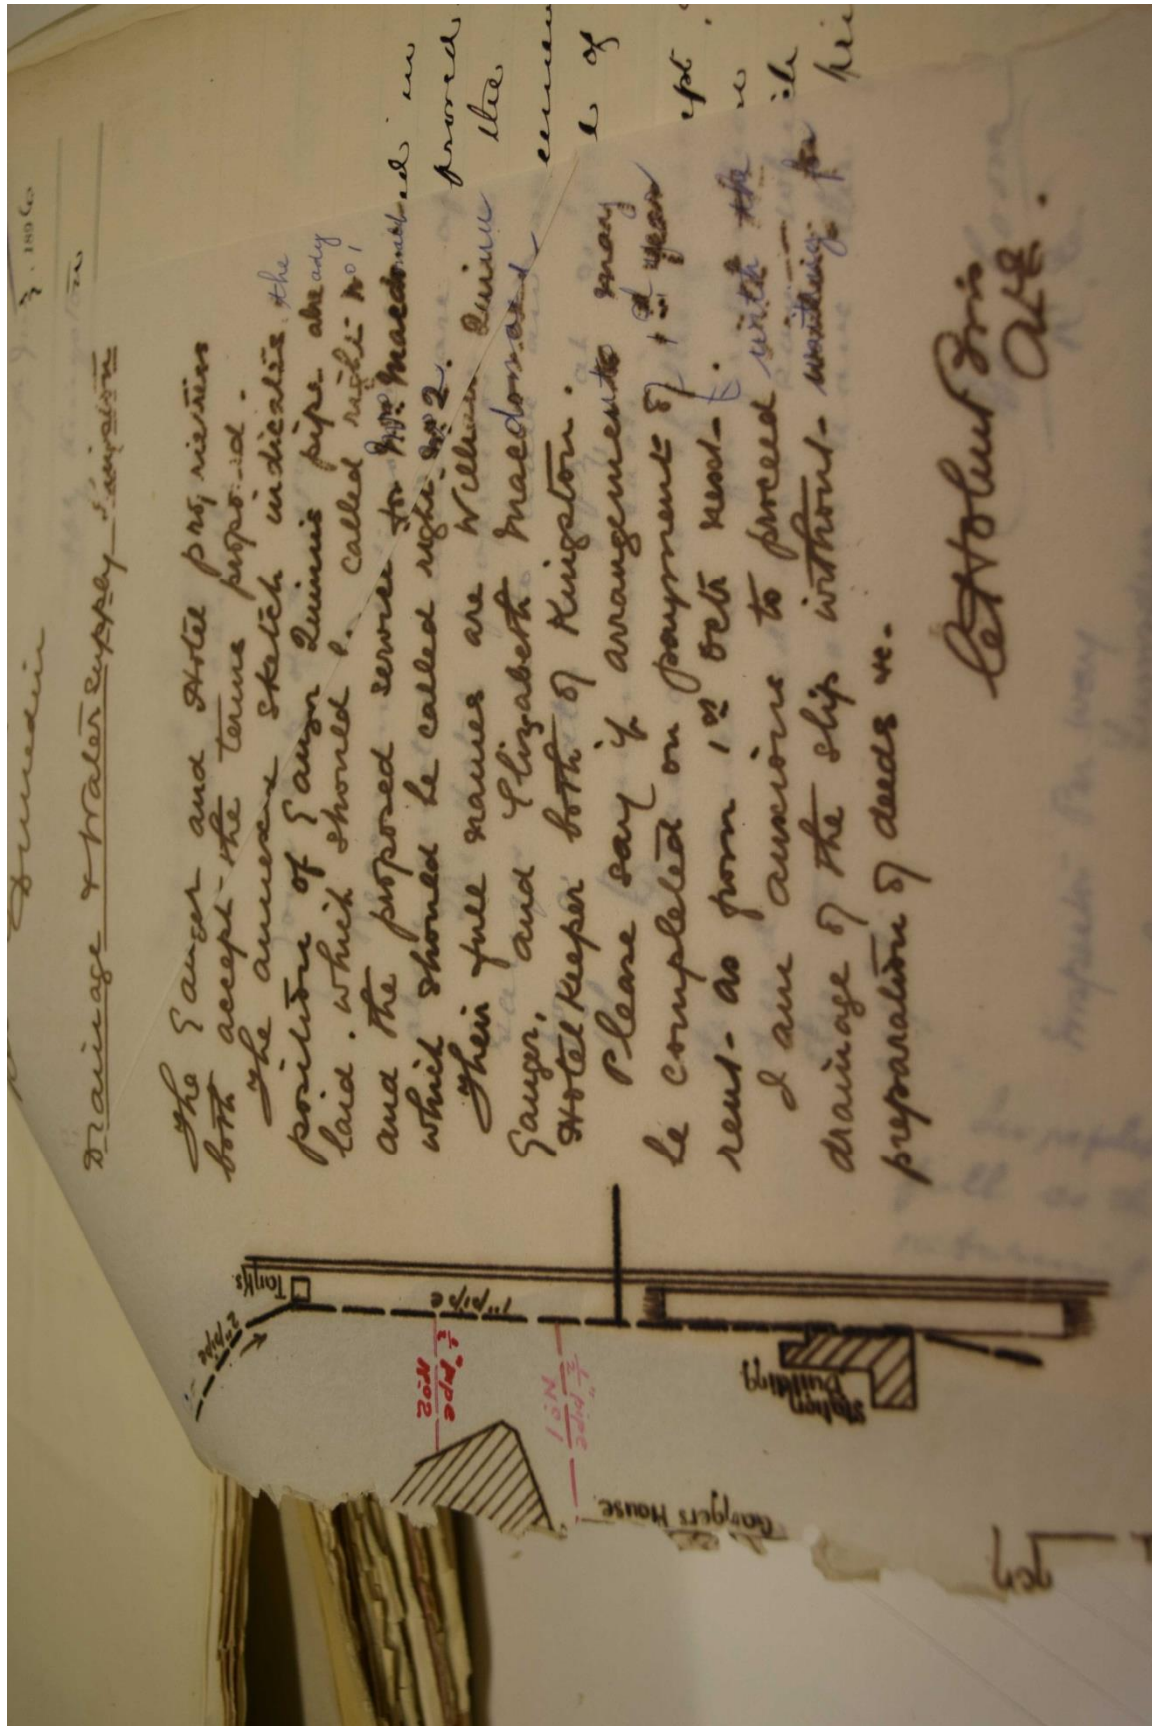 Dunedin
1896
Drainage & Water supply Kingston
The Ganger and Hotel proprietress
both accept the terms proposed.
The annexed sketch indicates the
position of Ganger Quinns pipe already
laid. which should be called right No 1
and the proposed service for Mrs Macdonald
which should be called right No 2.
Their full names are William Quinn
Ganger, and Elizabeth Macdonald
Hotel Keeper both of Kingston.
Please say if arrangements may
be completed on payment of 1st years
rent as from 1st Octr next.
I am anxious to proceed with the
drainage of the slip without waiting for
preparation of deeds &c.
in
proved
the
of
Tanks
2" pipe
1" pipe
½" pipe
No 2
½" pipe
No 1
Station
Building
Gangers House